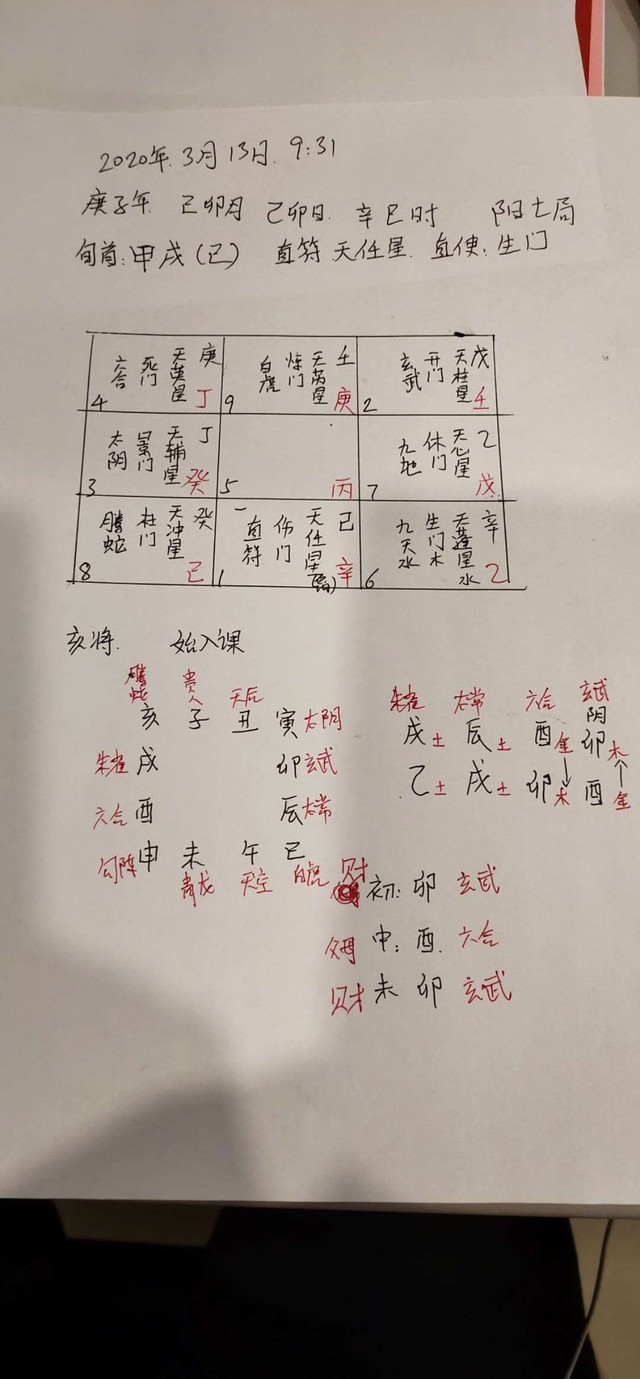 2020年.3月13日.9:31
庚子年 己卯月 己卯日. 辛巳时 阳七局
旬首:甲戌(己) 直符 天任星. 直使:生门
六合 死门 天英星 庚 丁 4
白虎 惊门 天芮星 壬 庚 9
玄武 开门 天柱星 戊 壬 2
太阴 景门 天辅星 丁 癸 3
丙 5
九地 休门 天心星 乙 戊 7
腾蛇 杜门 天冲星 癸 己 8
直符 伤门 天任星 己 辛 1
九天水 生门木 天蓬星水 辛 乙 6
亥将. 始入课
腾蛇 贵人 天后
亥 子 丑 寅太阴
朱雀戌 卯玄武
六合酉 辰太常
勾陈申 未 午 巳
青龙 天空 白虎
朱雀 太常 六合 玄武
阴
戌土 辰土 酉金 卯木
乙土 戌土 卯木 酉金
财 初:卯 玄武
中:酉. 六合
财 末 卯 玄武